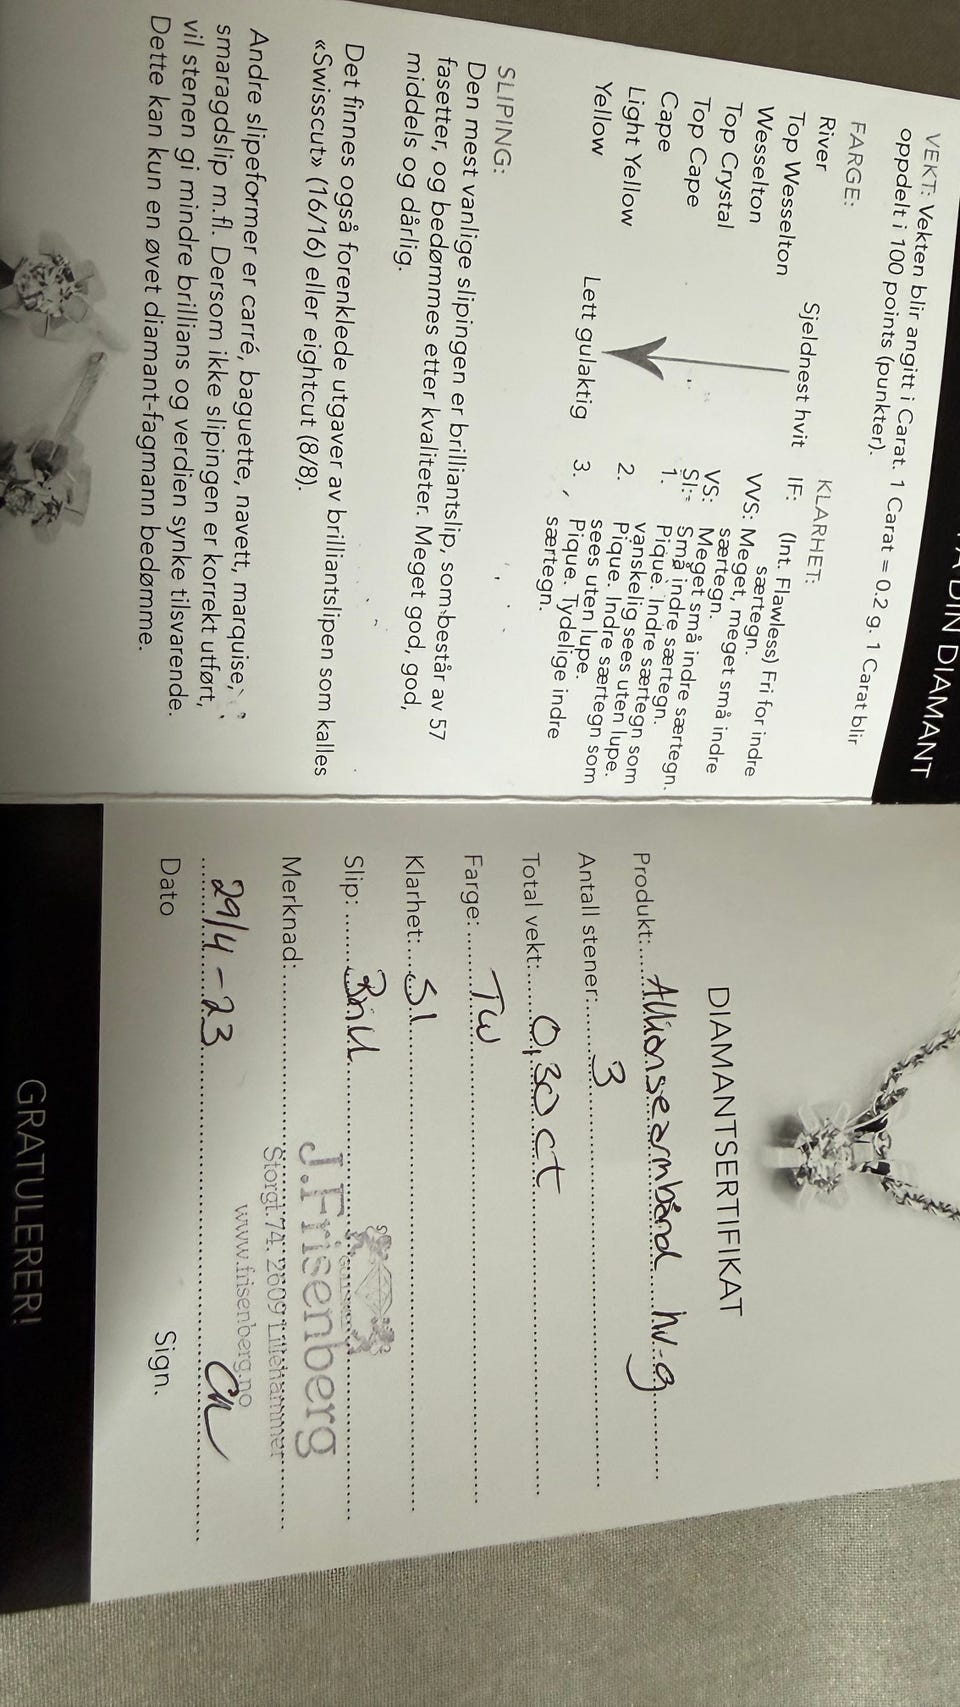 DIN DIAMANT
VEKT: Vekten blir angitt i Carat. 1 Carat = 0.2 g. 1 Carat blir
oppdelt i 100 points (punkter).
FARGE:
River
Top Wesselton
Wesselton
Top Crystal
Top Cape
Cape
Light Yellow
Yellow
Sjeldnest hvit
Lett gulaktig
KLARHET:
IF: (Int. Flawless) Fri for indre
særtegn.
VVS: Meget, meget små indre
særtegn.
VS: Meget små indre særtegn.
SI: Små indre særtegn.
1. Pique. Indre særtegn som
vanskelig sees uten lupe.
2. Pique. Indre særtegn som
sees uten lupe.
3. Pique. Tydelige indre
særtegn.
SLIPING:
Den mest vanlige slipingen er brilliantslip, som består av 57
fasetter, og bedømmes etter kvaliteter. Meget god, god,
middels og dårlig.
Det finnes også forenklede utgaver av brilliantslipen som kalles
«Swisscut» (16/16) eller eightcut (8/8).
Andre slipeformer er carré, baguette, navett, marquise,
smaragdslip m.fl. Dersom ikke slipingen er korrekt utført,
vil stenen gi mindre brillians og verdien synke tilsvarende.
Dette kan kun en øvet diamant-fagmann bedømme.
DIAMANTSERTIFIKAT
Produkt: Allionsearmbånd hv-g
Antall stener: 3
Total vekt: 0,30 ct
Farge: TW
Klarhet: SI
Slip: Brill
Merknad:
J.Frisenberg
Storgt.74. 2609 Lillehammer
www.frisenberg.no
29/4-23
Dato
Sign.
GRATULERER!